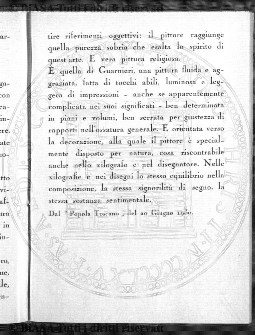 tire riferimenti oggettivi: il pittore raggiunge
quella purezza sobria che esalta lo spirito di
quest'arte. È vera pittura religiosa.
È quella di Guarnieri, una pittura fluida e ag-
graziata, fatta di tocchi abili, luminosa e leg-
gera di impressioni - anche se apparentemente
complicata nei suoi significati - ben determinata
in piani e volumi, ben serrata per giustezza di
rapporti nell'ossatura generale. È orientata verso
la decorazione, alla quale il pittore è special-
mente disposto per natura, cosa riscontrabile
anche nello xilografo e nel disegnatore. Nelle
xilografie e nei disegni lo stesso equilibrio nella
composizione, la stessa signorilità di segno, la
stessa sostanza sentimentale.
Dal "Popolo Toscano", del 20 Giugno